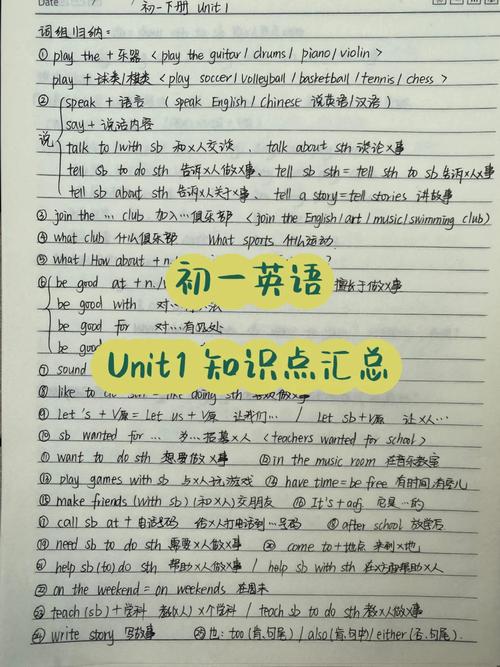 Date
初一下册 Unit 1
词组归纳:
① play the + 乐器 < play the guitar / drums / piano / violin >
play + 球类/棋类 < play soccer / volleyball / basketball / tennis / chess >
② speak + 语言 ( speak English / Chinese 说英语/汉语 )
say + 说话内容
说 talk to / with sb 和x人交谈 、 talk about sth 谈论x事
tell sb to do sth 告诉x人做x事、 tell sb sth = tell sth to sb 告诉x人x事
tell sb about sth 告诉x人关于x事、 tell a story = tell stories 讲故事
③ join the … club 加入…俱乐部 < join the English / art / music / swimming club >
④ what club 什么俱乐部 What sports 什么运动
⑤ what / How about + n. /
初一英语
⑥ be good at + n. / 擅长于做x事
be good with 对…
be good for 对…有好处
be good
Unit1 知识点汇总
⑦ sound
⑧ like to do sth = like doing sth 喜欢做x事
⑨ Let's + V原 = Let us + V原 让我们… / Let sb + V原 让x人…
⑩ sb wanted for … 为…招募x人 < teachers wanted for school >
⑪ want to do sth 想要做x事 ⑫ in the music room 在音乐教室
⑬ play games with sb 与x人玩游戏 ⑭ have time = be free 有时间,有空儿
⑮ make friends (with sb) (和x人)交朋友 ⑯ It's + adj. 它是…的
⑰ call sb at + 电话号码 给x人打电话到…号码 ⑱ after school 放学后
⑲ need sb to do sth 需要x人做x事 ⑳ come to + 地点 来到x地
㉑ help sb (to) do sth 帮助x人做x事 / help sb with sth 在x方面帮助x人
㉒ on the weekend = on weekends 在周末
㉓ teach (sb) + 学科 教(x人)x个学科 / teach sb to do sth 教x人做x事
㉔ write story 写故事 ㉕ 也: too (肯、句尾) / also (肯、句中) / either (否、句尾).